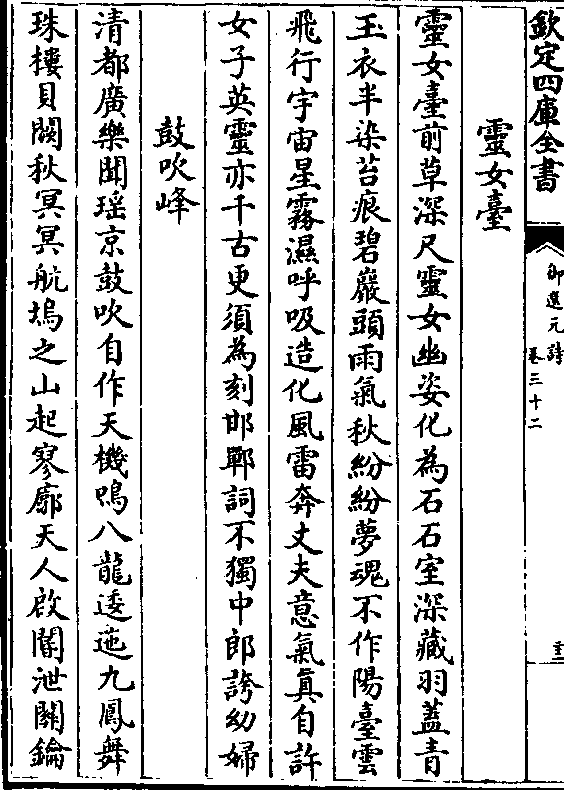 欽定四庫全書
御選元詩
卷三十二
靈女臺
靈女臺前草深尺靈女幽姿化為石石室深藏羽蓋青
玉衣半染苔痕碧巖頭雨氣秋紛紛夢魂不作陽臺雲
飛行宇宙星霧濕呼吸造化風雷奔丈夫意氣真自許
女子英靈亦千古更須為刻邯鄲詞不獨中郎誇幼婦
鼓吹峰
清都廣樂聞瑤京鼓吹自作天機鳴八龍逶迤九鳳舞
珠樓貝闕秋冥冥航塢之山起寥廓天人啟闔泄關鑰